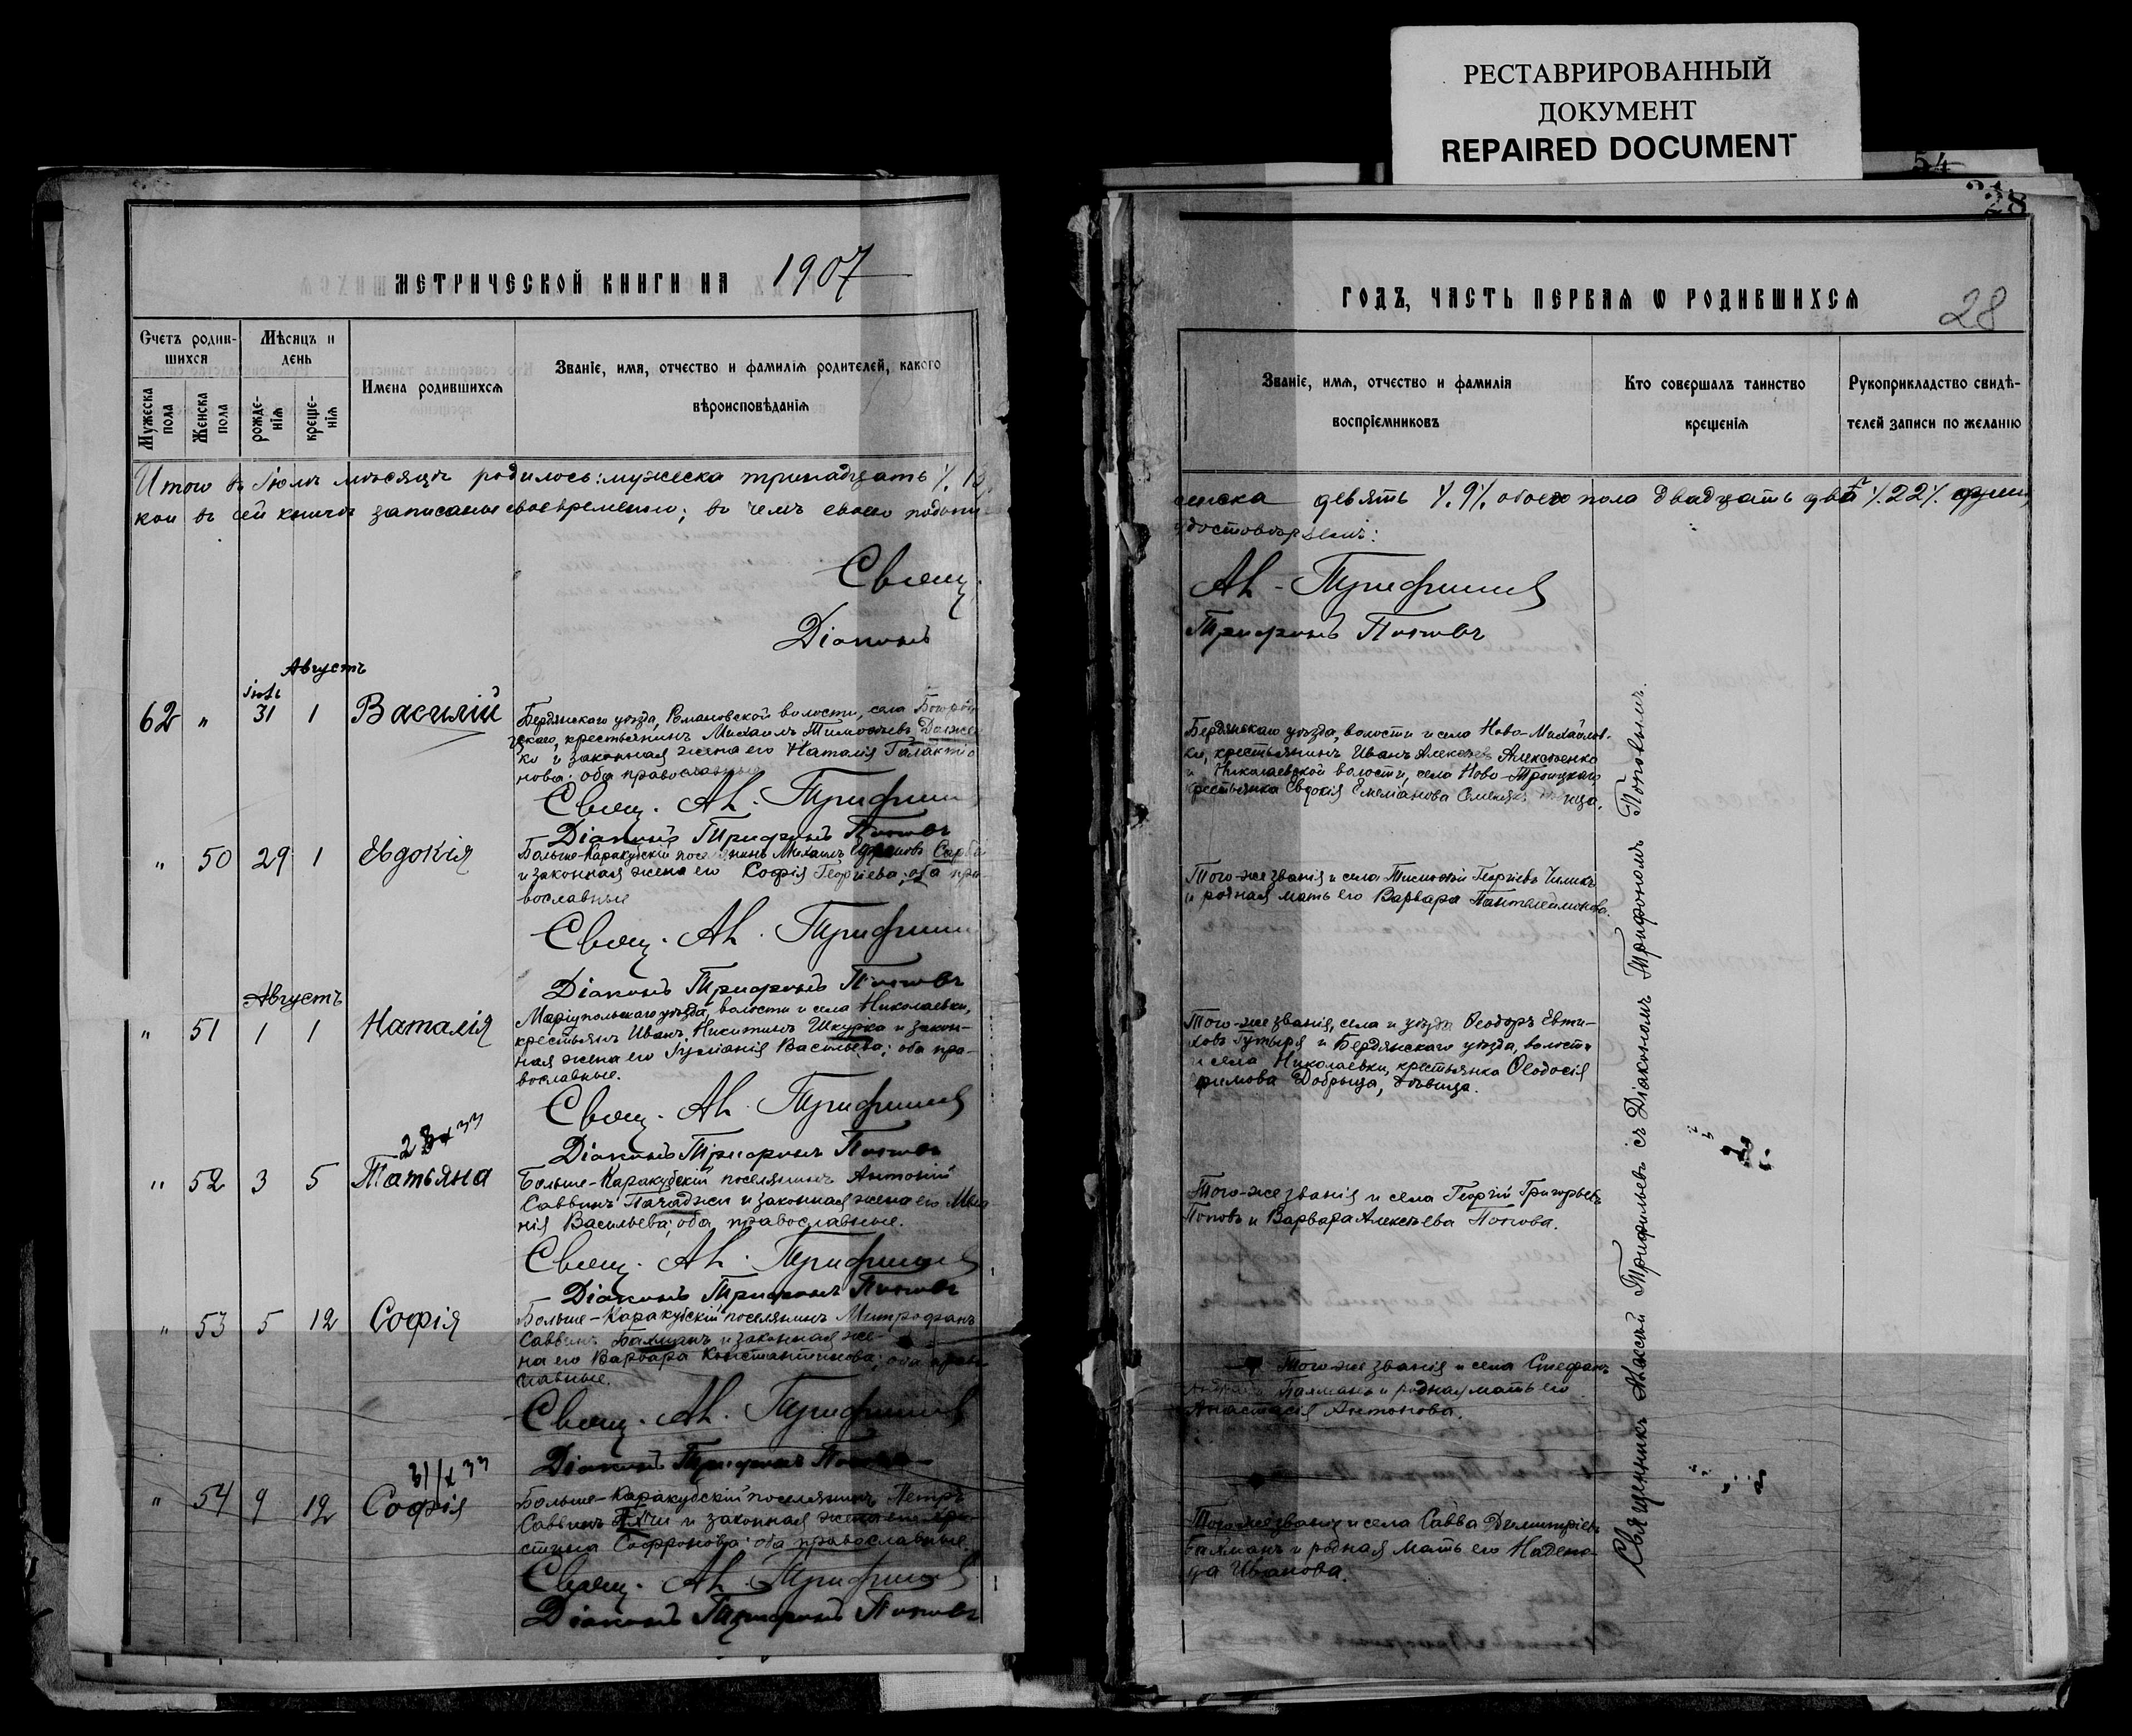 РЕСТАВРИРОВАННЫЙ
ДОКУМЕНТ
REPAIRED DOCUMENT
54
28
МЕТРИЧЕСКОЙ КНИГИ НА 1907
Счетъ родив-
шихся
Мѣсяцъ и
день
Мужеска
пола
Женска
пола
рожде-
нія
креще-
нія
Имена родившихся
Званіе, имя, отчество и фамилія родителей, какого
вѣроисповѣданія
Итого въ Іюлѣ мѣсяцѣ родилось: мужеска тринадцать
кои въ сей книгѣ записаны своевременно; въ чемъ
Свящ.
Діаконъ
Августъ
62 " 31 1 Василій
Бердянскаго уѣзда, Романовской волости, села
крестьянинъ Михаилъ Тимофѣевъ
ко и законная жена его Наталія Галактіо
нова; оба православные
Свящ. Ал. Трифильевъ
Діаконъ Трифонъ Поповъ
" 50 29 1 Евдокія
Больше-Каракубскій поселянинъ Михаилъ
и законная жена его Софія Георгіева; оба пра-
вославные
Свящ. Ал. Трифильевъ
Діаконъ Трифонъ Поповъ
Августъ
" 51 1 1 Наталія
Маріупольскаго уѣзда, волости и села Николаевки,
крестьянъ Иванъ Никитинъ Шкурка и закон-
ная жена его Іуліанія Васильева; оба пра-
вославные.
Свящ. Ал. Трифильевъ
Діаконъ Трифонъ Поповъ
" 52 3 5 Татьяна
Больше-Каракубскій поселянинъ Антоній
Саввинъ Пачаджи и законная жена его
нія Васильева; оба православные.
Свящ. Ал. Трифильевъ
Діаконъ Трифонъ Поповъ
" 53 5 12 Софія
Больше-Каракубскій поселянинъ Митрофанъ
Саввинъ Бахманъ и законная же-
на его Варвара Константинова; оба право-
славные.
Свящ. Ал. Трифильевъ
Діаконъ Трифонъ Поповъ
31/X 33
" 54 9 12 Софія
Больше-Каракубскій поселянинъ Петръ
Саввинъ и законная жена его
стина Софронова; оба православные.
Свящ. Ал. Трифильевъ
Діаконъ Трифонъ Поповъ
ГОДЪ, ЧАСТЬ ПЕРВАЯ Ѡ РОДИВШИХСЯ
28
Званіе, имя, отчество и фамилія
воспріемниковъ
Кто совершалъ таинство
крещенія
Рукоприкладство свидѣ-
телей записи по желанію
женска девять ٪ 9 ٪ обоего пола двадцать два ٪ 22 ٪ души,
достовѣряемъ:
Ал. Трифильевъ
Трифонъ Поповъ
Бердянскаго уѣзда, волости и села Ново-Михайлов-
ки, крестьянинъ Иванъ Алексѣевъ Алексѣенко
и Николаевской волости, села Ново-Троицкаго
крестьянка Евдокія Емеліанова
Того-же званія и села Тимофей Георгіевъ Чилихъ
и родная мать его Варвара Пантелеймонова.
Того-же званія, села и уѣзда Ѳеодоръ Евти-
ховъ Гутыря и Бердянскаго уѣзда, волости
и села Николаевки, крестьянка Ѳеодосія
Добрыца, дѣвица.
Того-же званія и села Георгій Григорьевъ
Поповъ и Варвара Алексѣева Попова.
Того-же званія и села Стефанъ
и родная мать его
Анастасія Антонова.
Того-же званія и села Савва Димитріевъ
Бахманъ и родная мать его Надеж-
да Иванова.
Священникъ Алексѣй Трифильевъ съ Діакономъ Трифономъ Поповымъ.